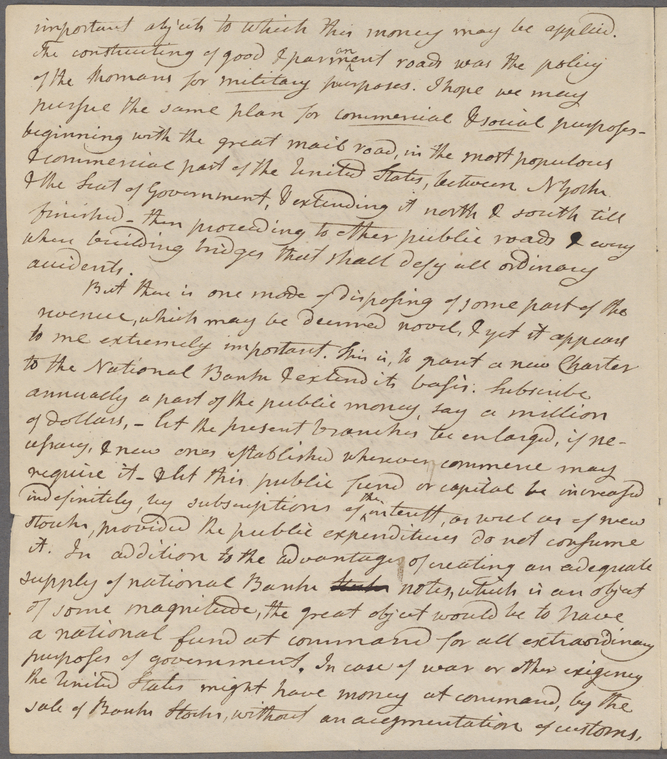 important objects to which this money may be applied.
The constructing of good & permanent roads was the policy
of the Romans for military purposes. I hope we may
pursue the same plan for commercial & social purposes -
beginning with the great mail road, in the most populous
& commercial part of the United States, between N York
& the Seat of Government, & extending it north & south till
finished - then proceeding to other public roads & every
where building bridges that shall defy all ordinary
accidents.
But there is one mode of disposing of some part of the
revenue, which may be deemed novel, & yet it appears
to me extremely important. This is, to grant a new Charter
to the National Bank & extend its basis. Subscribe
annually a part of the public money, say a million
of dollars, - let the present branches be enlarged, if ne-
cessary, & new ones established wherever commerce may
require it - & let this public fund or capital be increased
indefinitely, by subscriptions of the interest, as well as of new
stocks, provided the public expenditures do not consume
it. In addition to the advantage of creating an adequate
supply of national Bank notes, which is an object
of some magnitude, the great object would be to have
a national fund at command for all extraordinary
purposes of government. In case of war or other exigency
the United States might have money at command, by the
sale of Bank Stocks, without an augmentation of customs,